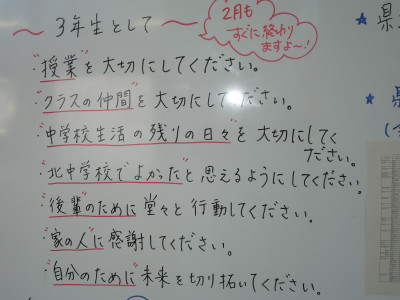 ～3年生として～
2月も
すぐに終わり
ますよ～!
・"授業"を大切にしてください。
・"クラスの仲間"を大切にしてください。
・"中学校生活の残りの日々"を大切にして
ください。
・"北中学校でよかった"と思えるようにしてください。
・"後輩のために"堂々と行動してください。
・"家の人"に感謝してください。
・"自分のために"未来を切り拓いてください。
★県
★